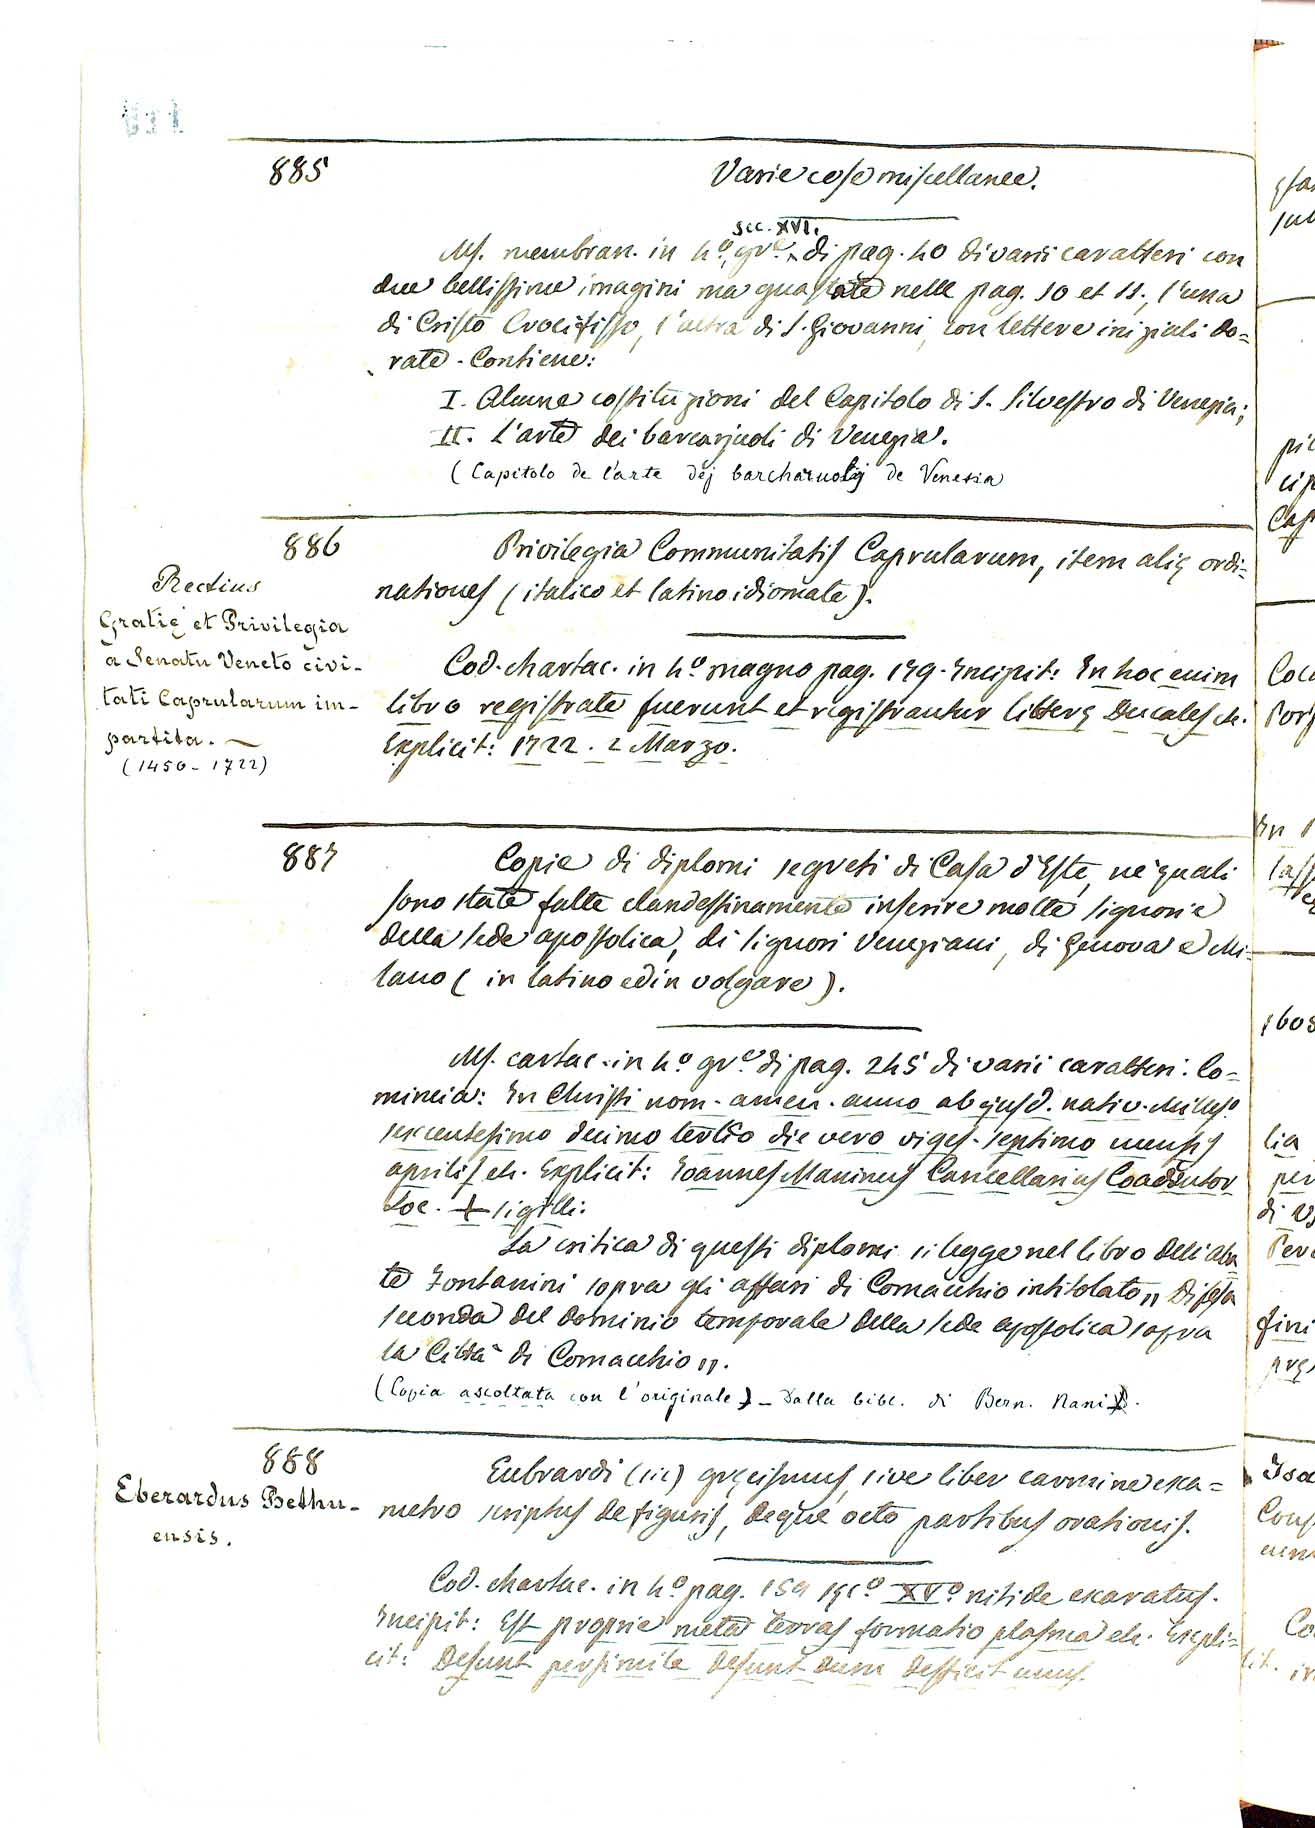 885
Varie cose miscellanee.
sec. XVI.
Ms. membran. in 4.º gr.e di pag. 40 di varii caratteri con
due bellissime imagini ma guastate nelle pag. 10 et 11, l'una
di Cristo Crocifisso, l'altra di S. Giovanni, con lettere iniziali do=
rate. Contiene:
I. Alcune costituzioni del Capitolo di S. Silvestro di Venezia;
II. L'arte dei barcarjuoli di Venezia.
(Capitolo de l'arte dej barcharuolj de Venesia
886
Privilegia Communitatis Caprularum, item alię ordi=
nationes (italico et latino idiomate).
Rectius
Gratię et Privilegia
a Senatu Veneto civi-
tati Caprularum im-
partita. —
(1450-1722)
Cod. chartac. in 4.º magno pag. 179. Incipit: In hoc enim
libro registrate fuerunt et registrantur litterę Ducales etc.
Explicit: 1722. 2 Marzo.
887
Copie di diplomi segreti di Casa d'Este, ne' quali
sono state fatte clandestinamente inserire molte signorie
della sede apostolica, di signori Veneziani, di Genova e Mi=
lano (in latino ed in volgare).
Ms. cartac. in 4.º gr.e di pag. 245 di varii caratteri. Co=
mincia: In Christi nom. amen. anno ab ejusd. nativ. Milles.º
sexcentesimo decimo tertio die vero viges. septimo mensis
aprilis etc. Explicit: Ioannes Maninus Cancellarius Coadiutor
Loc. + sigilli.
La critica di questi diplomi si legge nel libro dell'aba=
te Fontanini sopra gli affari di Comacchio intitolato „ Difesa
seconda del dominio temporale della sede apostolica sopra
la Città di Comacchio „.
(Copia ascoltata con l'originale) - Dalla bibl. di Bern. Nani.
888
Eberardus Bethu-
ensis.
Eubrardi (sic) gręcismus, sive liber carmine exa=
metro scriptus de figuris, deque octo partibus orationis.
Cod. chartac. in 4.º pag. 159 sęc.º XV.º nitide exaratus.
Incipit: Est proprie meta terras formatio plasma etc. Expli=
cit: Desunt persimile desunt dum defficit unus.